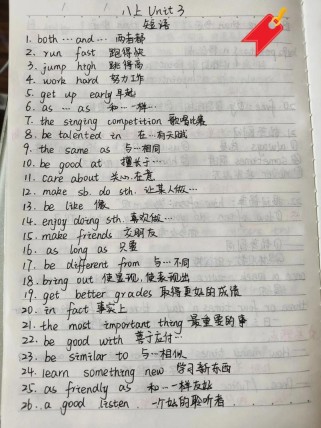 八上 Unit 3
短语
1. both … and … 两者都
2. run fast 跑得快
3. jump high 跳得高
4. work hard 努力工作
5. get up early 早起
6. as … as 和…一样…
7. the singing competition 歌唱比赛
8. be talented in 在…有天赋
9. the same as 与…相同
10. be good at 擅长于…
11. care about 关心,在意
12. make sb. do sth. 让某人做…
13. be like 像
14. enjoy doing sth. 喜欢做…
15. make friends 交朋友
16. as long as 只要
17. be different from 与…不同
18. bring out 使显现,使表现出
19. get better grades 取得更好的成绩
20. in fact 事实上
21. the most important thing 最重要的事
22. be good with 善于应付…
23. be similar to 与…相似
24. learn something new 学习新东西
25. as friendly as 和…一样友好
26. a good listen 一个好的聆听者